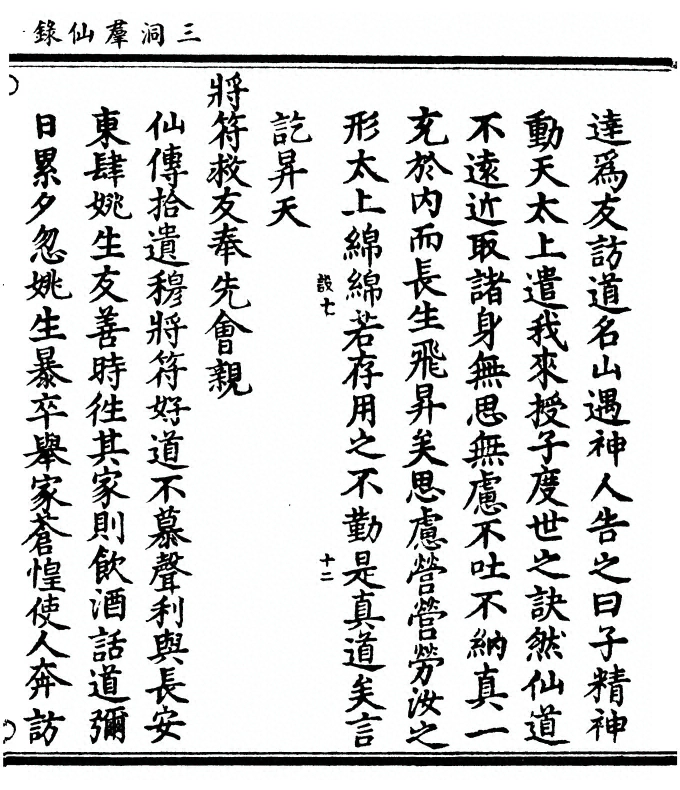 三洞羣仙錄
達爲友訪道名山遇神人告之曰子精神
動天太上遣我來授子度世之訣然仙道
不遠近取諸身無思無慮不吐不納真一
充於内而長生飛昇矣思慮營營勞汝之
形太上綿綿若存用之不勤是真道矣言
設七
十二
訖昇天
將符救友奉先會親
仙傳拾遺穆將符好道不慕聲利與長安
東肆姚生友善時徃其家則飲酒話道彌
日累夕忽姚生暴卒舉家蒼惶使人奔訪